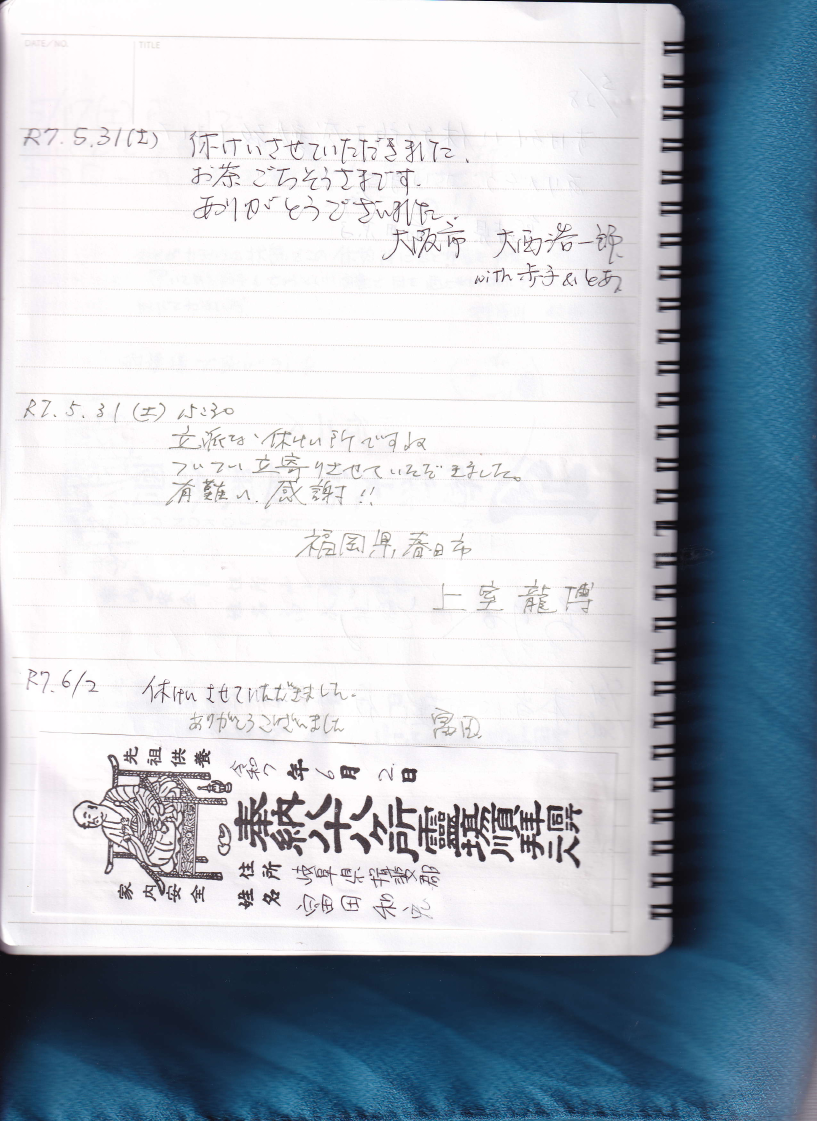 DATE/NO.
TITLE
R7.5.31(土)
休けいさせていただきました。
お茶ごちそうさまです。
ありがとうございました。
大阪市 大西浩一郎
with 歩子 & とあ
R7.5.31(土) 15:30
立派な休けい所ですね
ついつい立寄りさせていただきました。
有難い、感謝!!
福岡県春日市
上室龍博
R7.6/2
休けいさせていただきました。
ありがとうございました
富田
先祖供養
家内安全
令和7年6月2日
奉納八十八ヶ所霊場順拝同行二人
住所 岐阜県揖斐郡
姓名 富田和